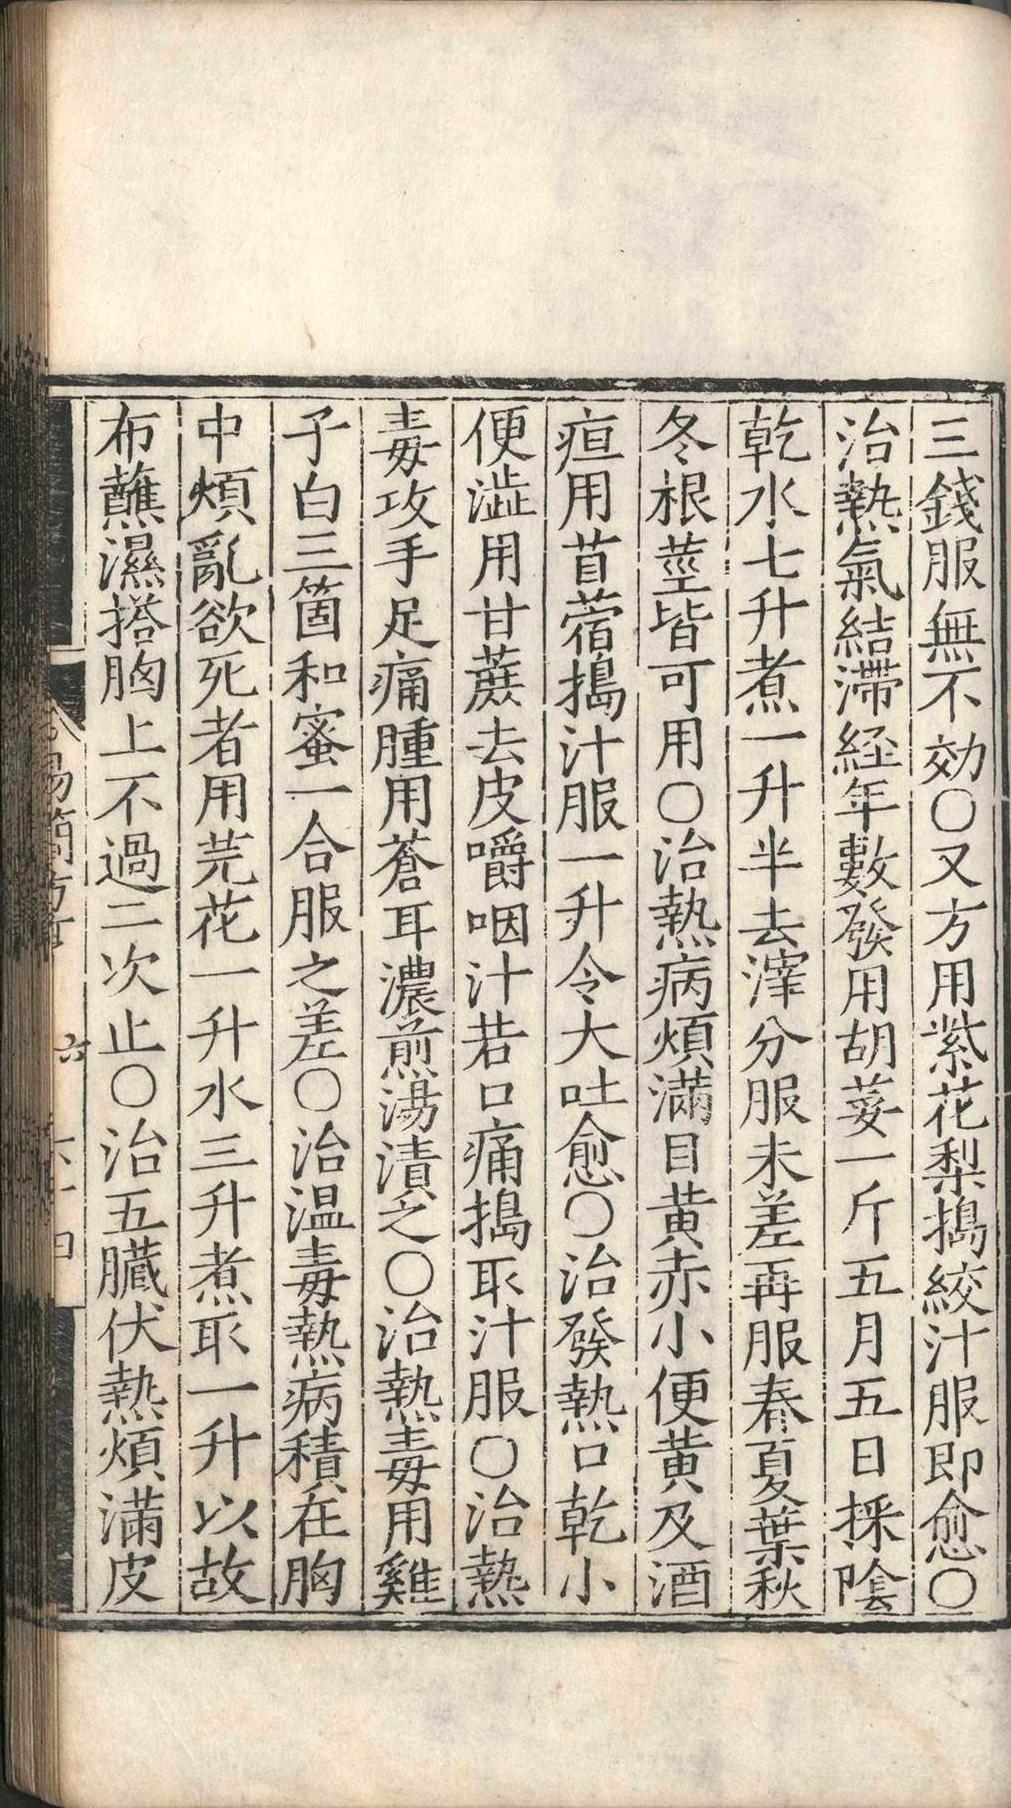 三錢服無不効〇又方用紫花梨搗絞汁服即愈〇
治熱氣結滯経年數發用胡荽一斤五月五日採陰
乾水七升煮一升半去滓分服未差再服春夏葉秋
冬根莖皆可用〇治熱病煩滿目黄赤小便黄及酒
疸用苜蓿搗汁服一升令大吐愈〇治發熱口乾小
便澁用甘蔗去皮嚼咽汁若口痛搗取汁服〇治熱
毒攻手足痛腫用蒼耳濃煎湯漬之〇治熱毒用雞
子白三箇和蜜一合服之差〇治温毒熱病積在胸
中煩亂欲死者用芫花一升水三升煮取一升以故
布蘸濕搭胸上不過二次止〇治五臟伏熱煩滿皮
六